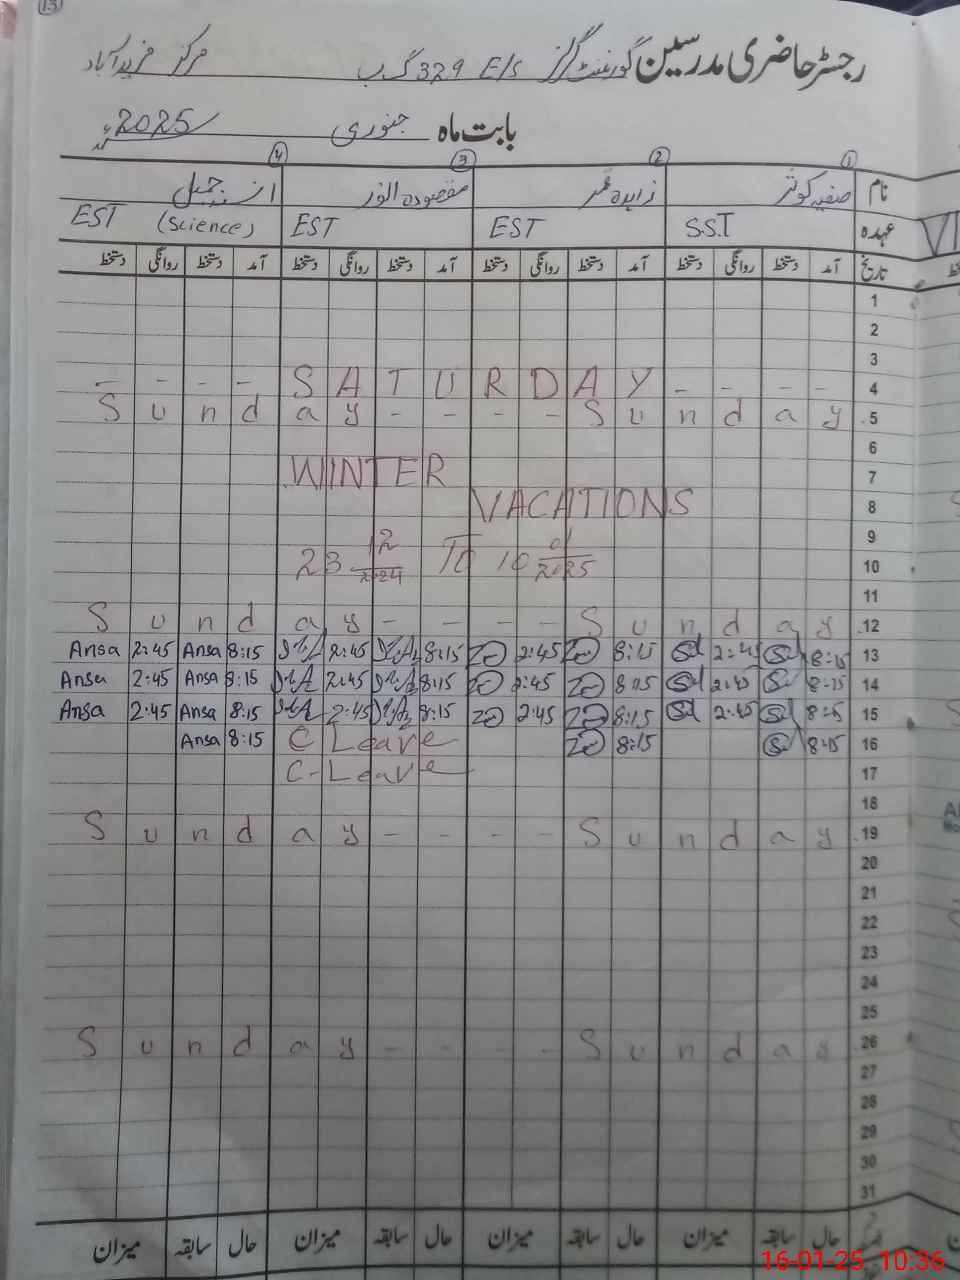 13
رجسٹر حاضری مدرسین گورنمنٹ گرلز E/S 329 گ ب مرکز فریدآباد
بابت ماہ جنوری 2025ء
① ② ③ ④
نام صفیہ کوثر زاہدہ مقصودہ انور
عہدہ S.S.T EST EST EST (Science)
تاریخ آمد دستخط روانگی دستخط آمد دستخط روانگی دستخط آمد دستخط روانگی دستخط آمد دستخط روانگی دستخط
1
2
3
- - - - SATURDAY - - - - 4
Sunday - - - - Sunday 5
6
WINTER 7
VACATIONS 8
9
23 12/2024 To 10 01/2025 10
11
Sunday - - - - Sunday 12
Ansa 2:45 Ansa 8:15 2:45 8:15 2:45 8:15 2:45 8:15 13
Ansa 2:45 Ansa 8:15 2:45 8:15 2:45 8:15 2:45 8:15 14
Ansa 2:45 Ansa 8:15 2:45 8:15 2:45 8:15 2:45 8:15 15
Ansa 8:15 C Leave 8:15 8:15 16
C-Leave 17
18
Sunday - - - - Sunday 19
20
21
22
23
24
25
Sunday - - - - Sunday 26
27
28
29
30
31
حال سابقہ میزان حال سابقہ میزان حال سابقہ میزان حال سابقہ میزان
16-01-25 10:36